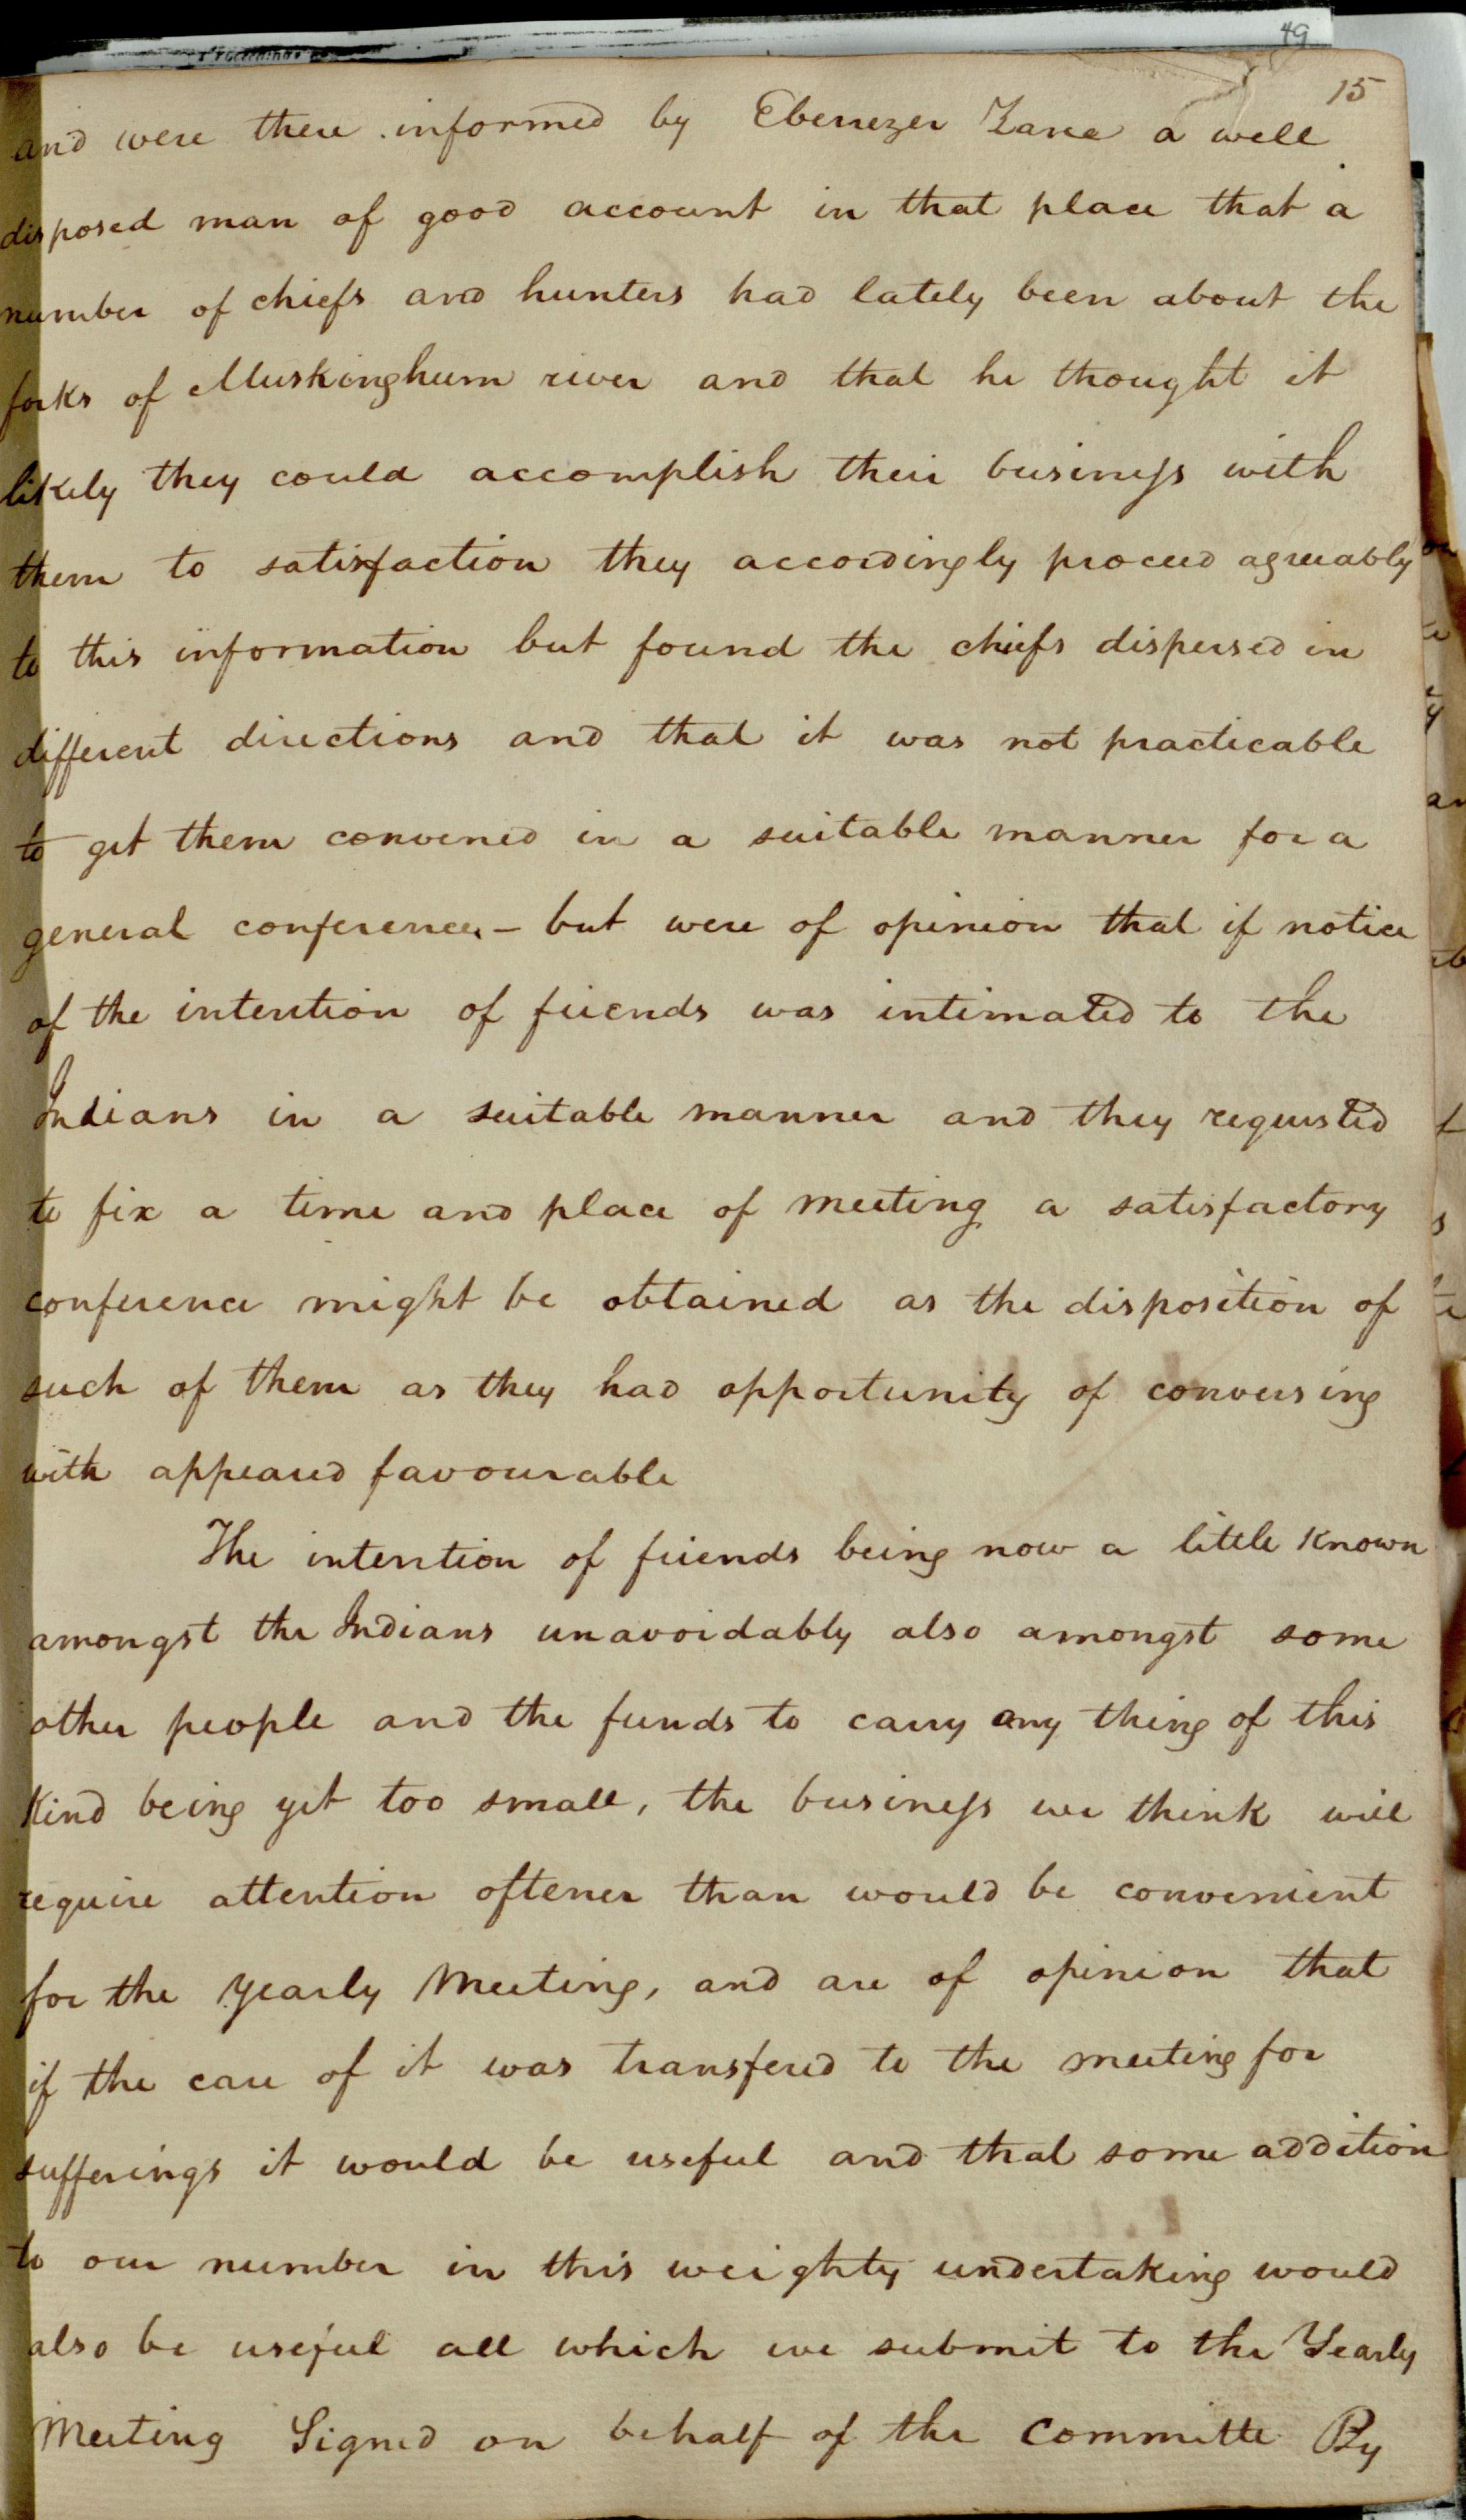 49
15
and were there informed by Ebenezer Zane a well
disposed man of good account in that place that a
number of chiefs and hunters had lately been about the
forks of Muskinghum river and that he thought it
likely they could accomplish their business with
them to satisfaction they accordingly proceed agreeably
to this information but found the chiefs dispersed in
different directions and that it was not practicable
to get them convened in a suitable manner for a
general conference – but were of opinion that if notice
of the intention of friends was intimated to the
Indians in a suitable manner and they requested
to fix a time and place of meeting a satisfactory
conference might be obtained as the disposition of
such of them as they had opportunity of conversing
with appeared favourable
The intention of friends being now a little known
amongst the Indians unavoidably also amongst some
other people and the funds to carry any thing of this
kind being yet too small, the business we think will
require attention oftener than would be convenient
for the yearly Meeting, and are of opinion that
if the care of it was transfered to the meeting for
sufferings it would be useful and that some addition
to our number in this weighty undertaking would
also be useful all which we submit to the Yearly
Meeting Signed on behalf of the Committe By